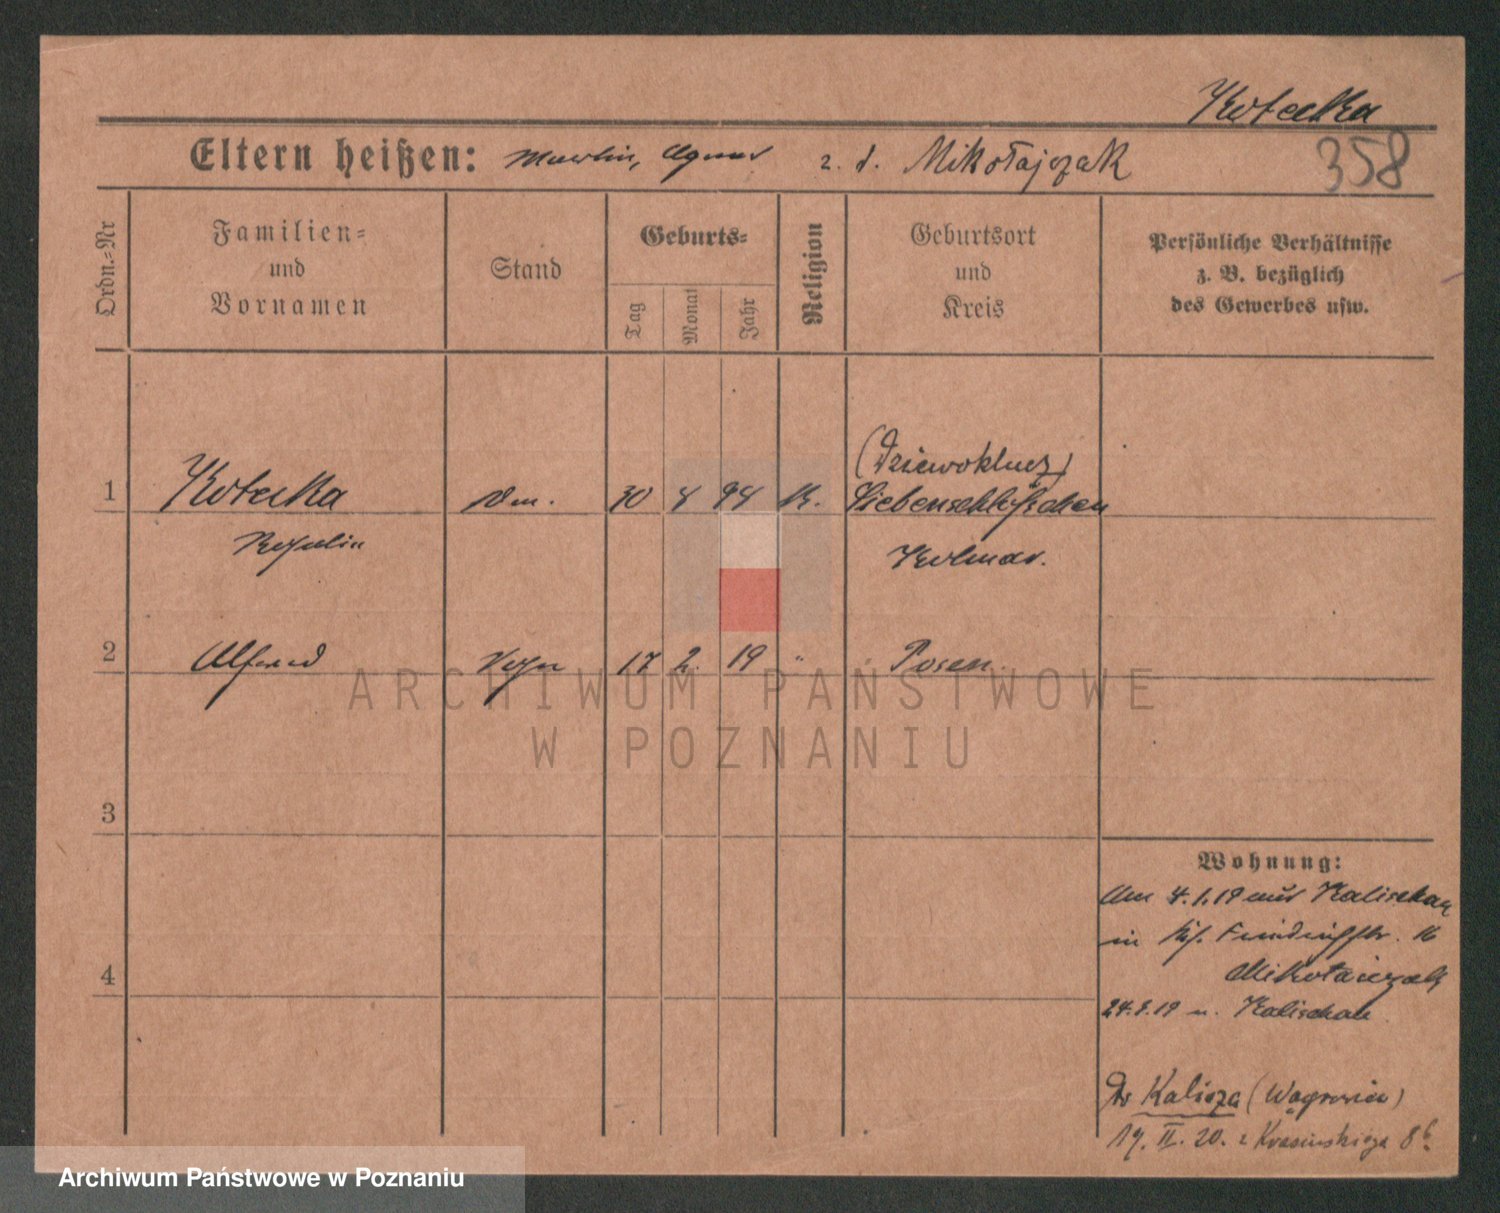 Kotecka
Eltern heißen: Martin, Agnes z. d. Mikołajczak
358
Ordn.-Nr
Familien-
und
Vornamen
Stand
Geburts-
Tag
Monat
Jahr
Religion
Geburtsort
und
Kreis
Persönliche Verhältnisse
z. B. bezüglich
des Gewerbes usw.
(Dziewoklucz)
1 Kotecka 30 4 94 K. Siebenschlößchen
Kolmar.
2 Alfred 17 2. 19 " Posen.
3
4
Wohnung:
Am 4.1.19 aus Kalischau
in 16
Mikołajczak
24.3.19 n. Kalischau
Do Kalisza (Wągrowiec)
19. II. 20. z Krasińskiego 8
ARCHIWUM PAŃSTWOWE
W POZNANIU
Archiwum Państwowe w Poznaniu